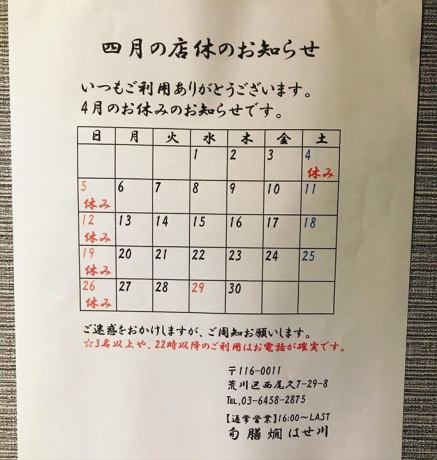 四月の店休のお知らせ
いつもご利用ありがとうございます。
4月のお休みのお知らせです。
日 月 火 水 木 金 土
1 2 3 4
休み
5 6 7 8 9 10 11
休み
12 13 14 15 16 17 18
休み
19 20 21 22 23 24 25
休み
26 27 28 29 30
休み
ご迷惑をおかけしますが、ご周知お願いします。
☆3名以上や、22時以降のご利用はお電話が確実です。
〒116-0011
荒川区西尾久7-29-8
TEL,03-6458-2875
【通常営業】16:00～LAST
旬膳燗 はせ川